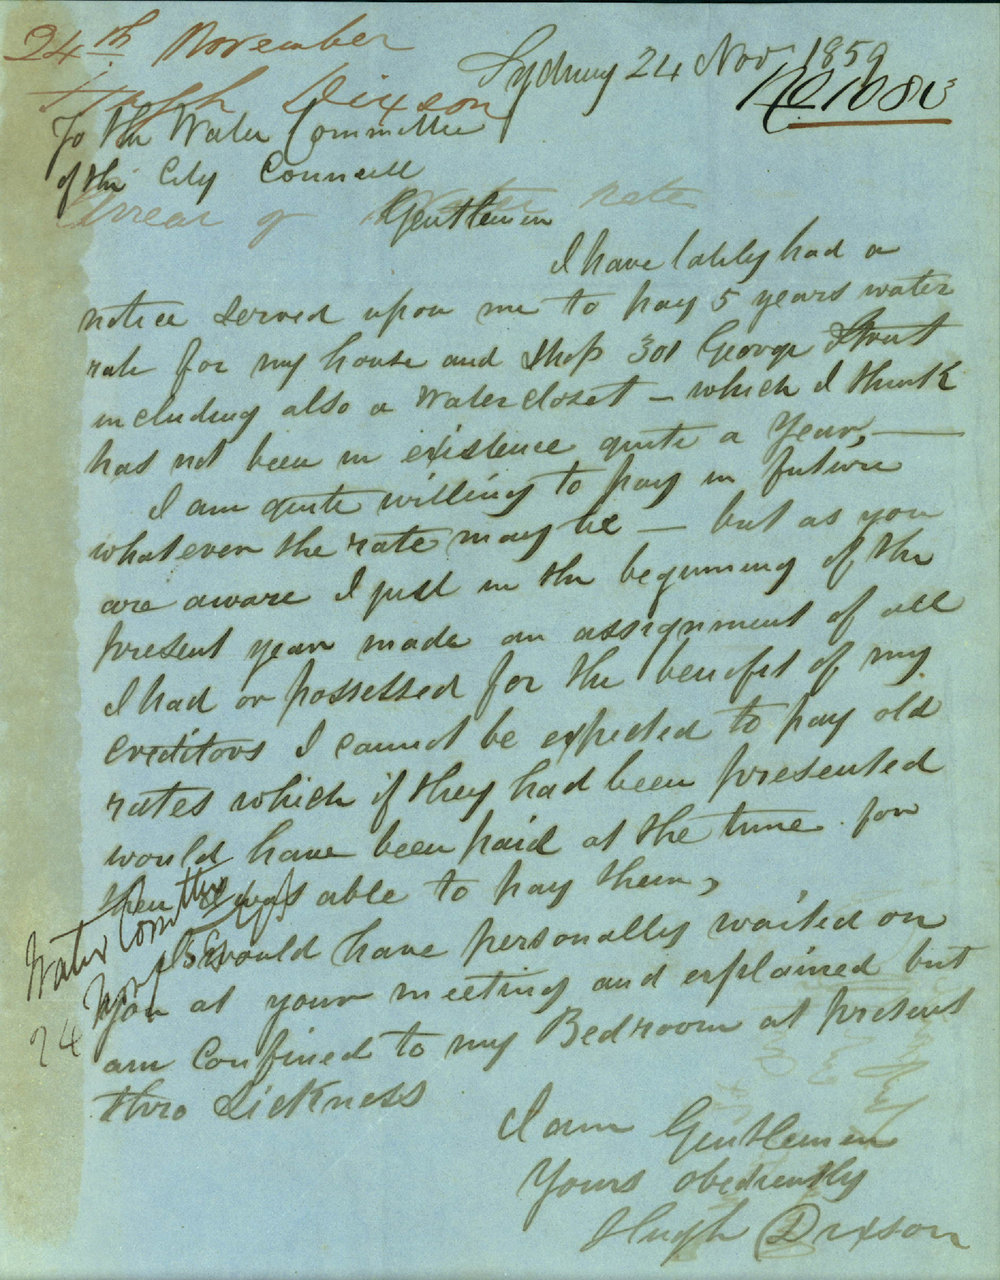 24th November
Sydney 24 Nov 1859
Hugh Dixson
To the Water Committee
of the City Councill
Arrear of Water rate
Gentlemen
I have lately had a
notice served upon me to pay 5 years water
rate for my house and Shop 301 George Street
including also a Water closet – which I think
has not been in existence quite a Year, —
I am quite willing to pay in future
whatever the rate may be — but as you
are aware I just in the beginning of the
present year made an assignment of all
I had or possessed for the benefit of my
creditors I cannot be expected to pay old
rates which if they had been presented
would have been paid at the time for
then I was able to pay them,
I would have personally waited on
you at your meeting and explained but
am Confined to my Bedroom at present
thro Sickness
Water Comttee
24
I am Gentlemen
Yours obediently
Hugh Dixson